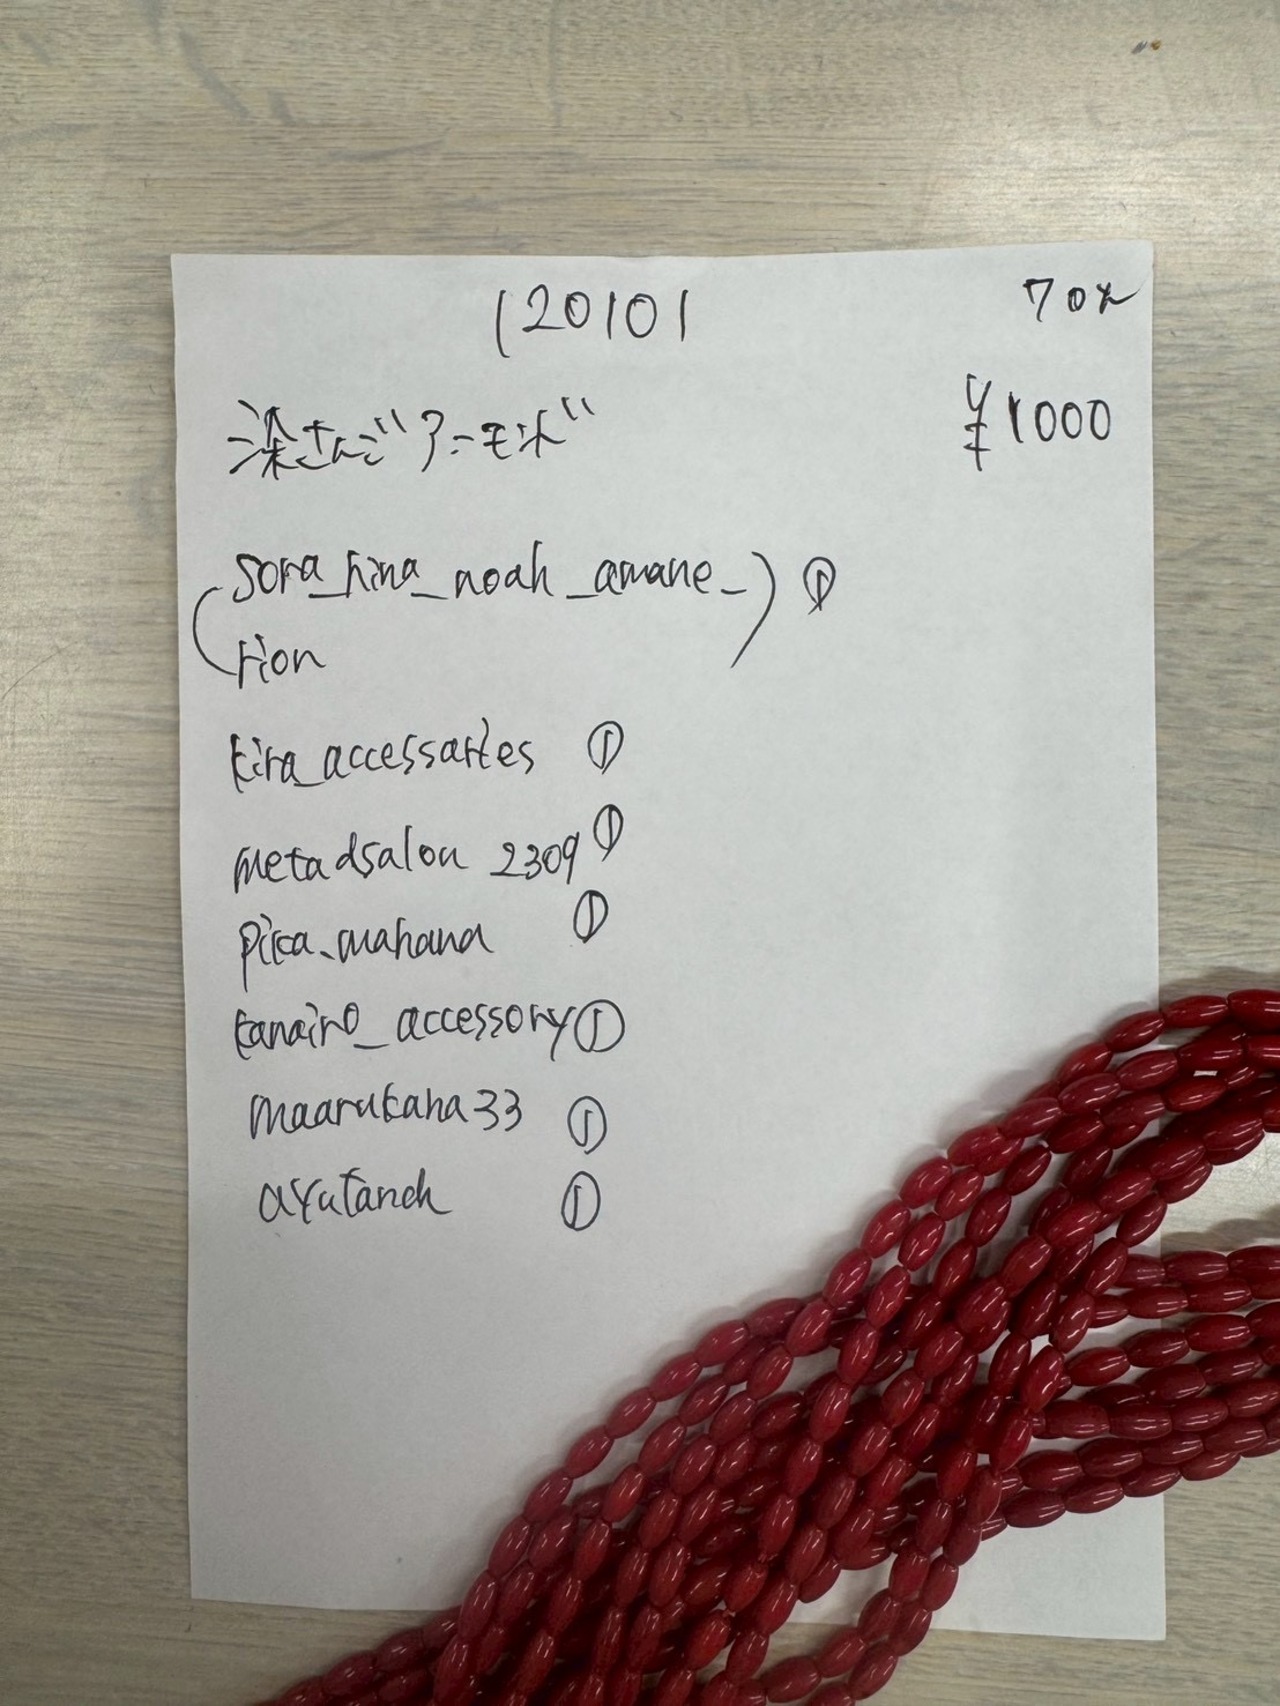 120101
70%
染さんご アーモンド
¥1000
(sora_hina_noah_amane_
rion) ①
kira_accessaries ①
metadsalon 2309 ①
pika.mahana ①
kanairo_accessory ①
maarukaha33 ①
ayutanch ①